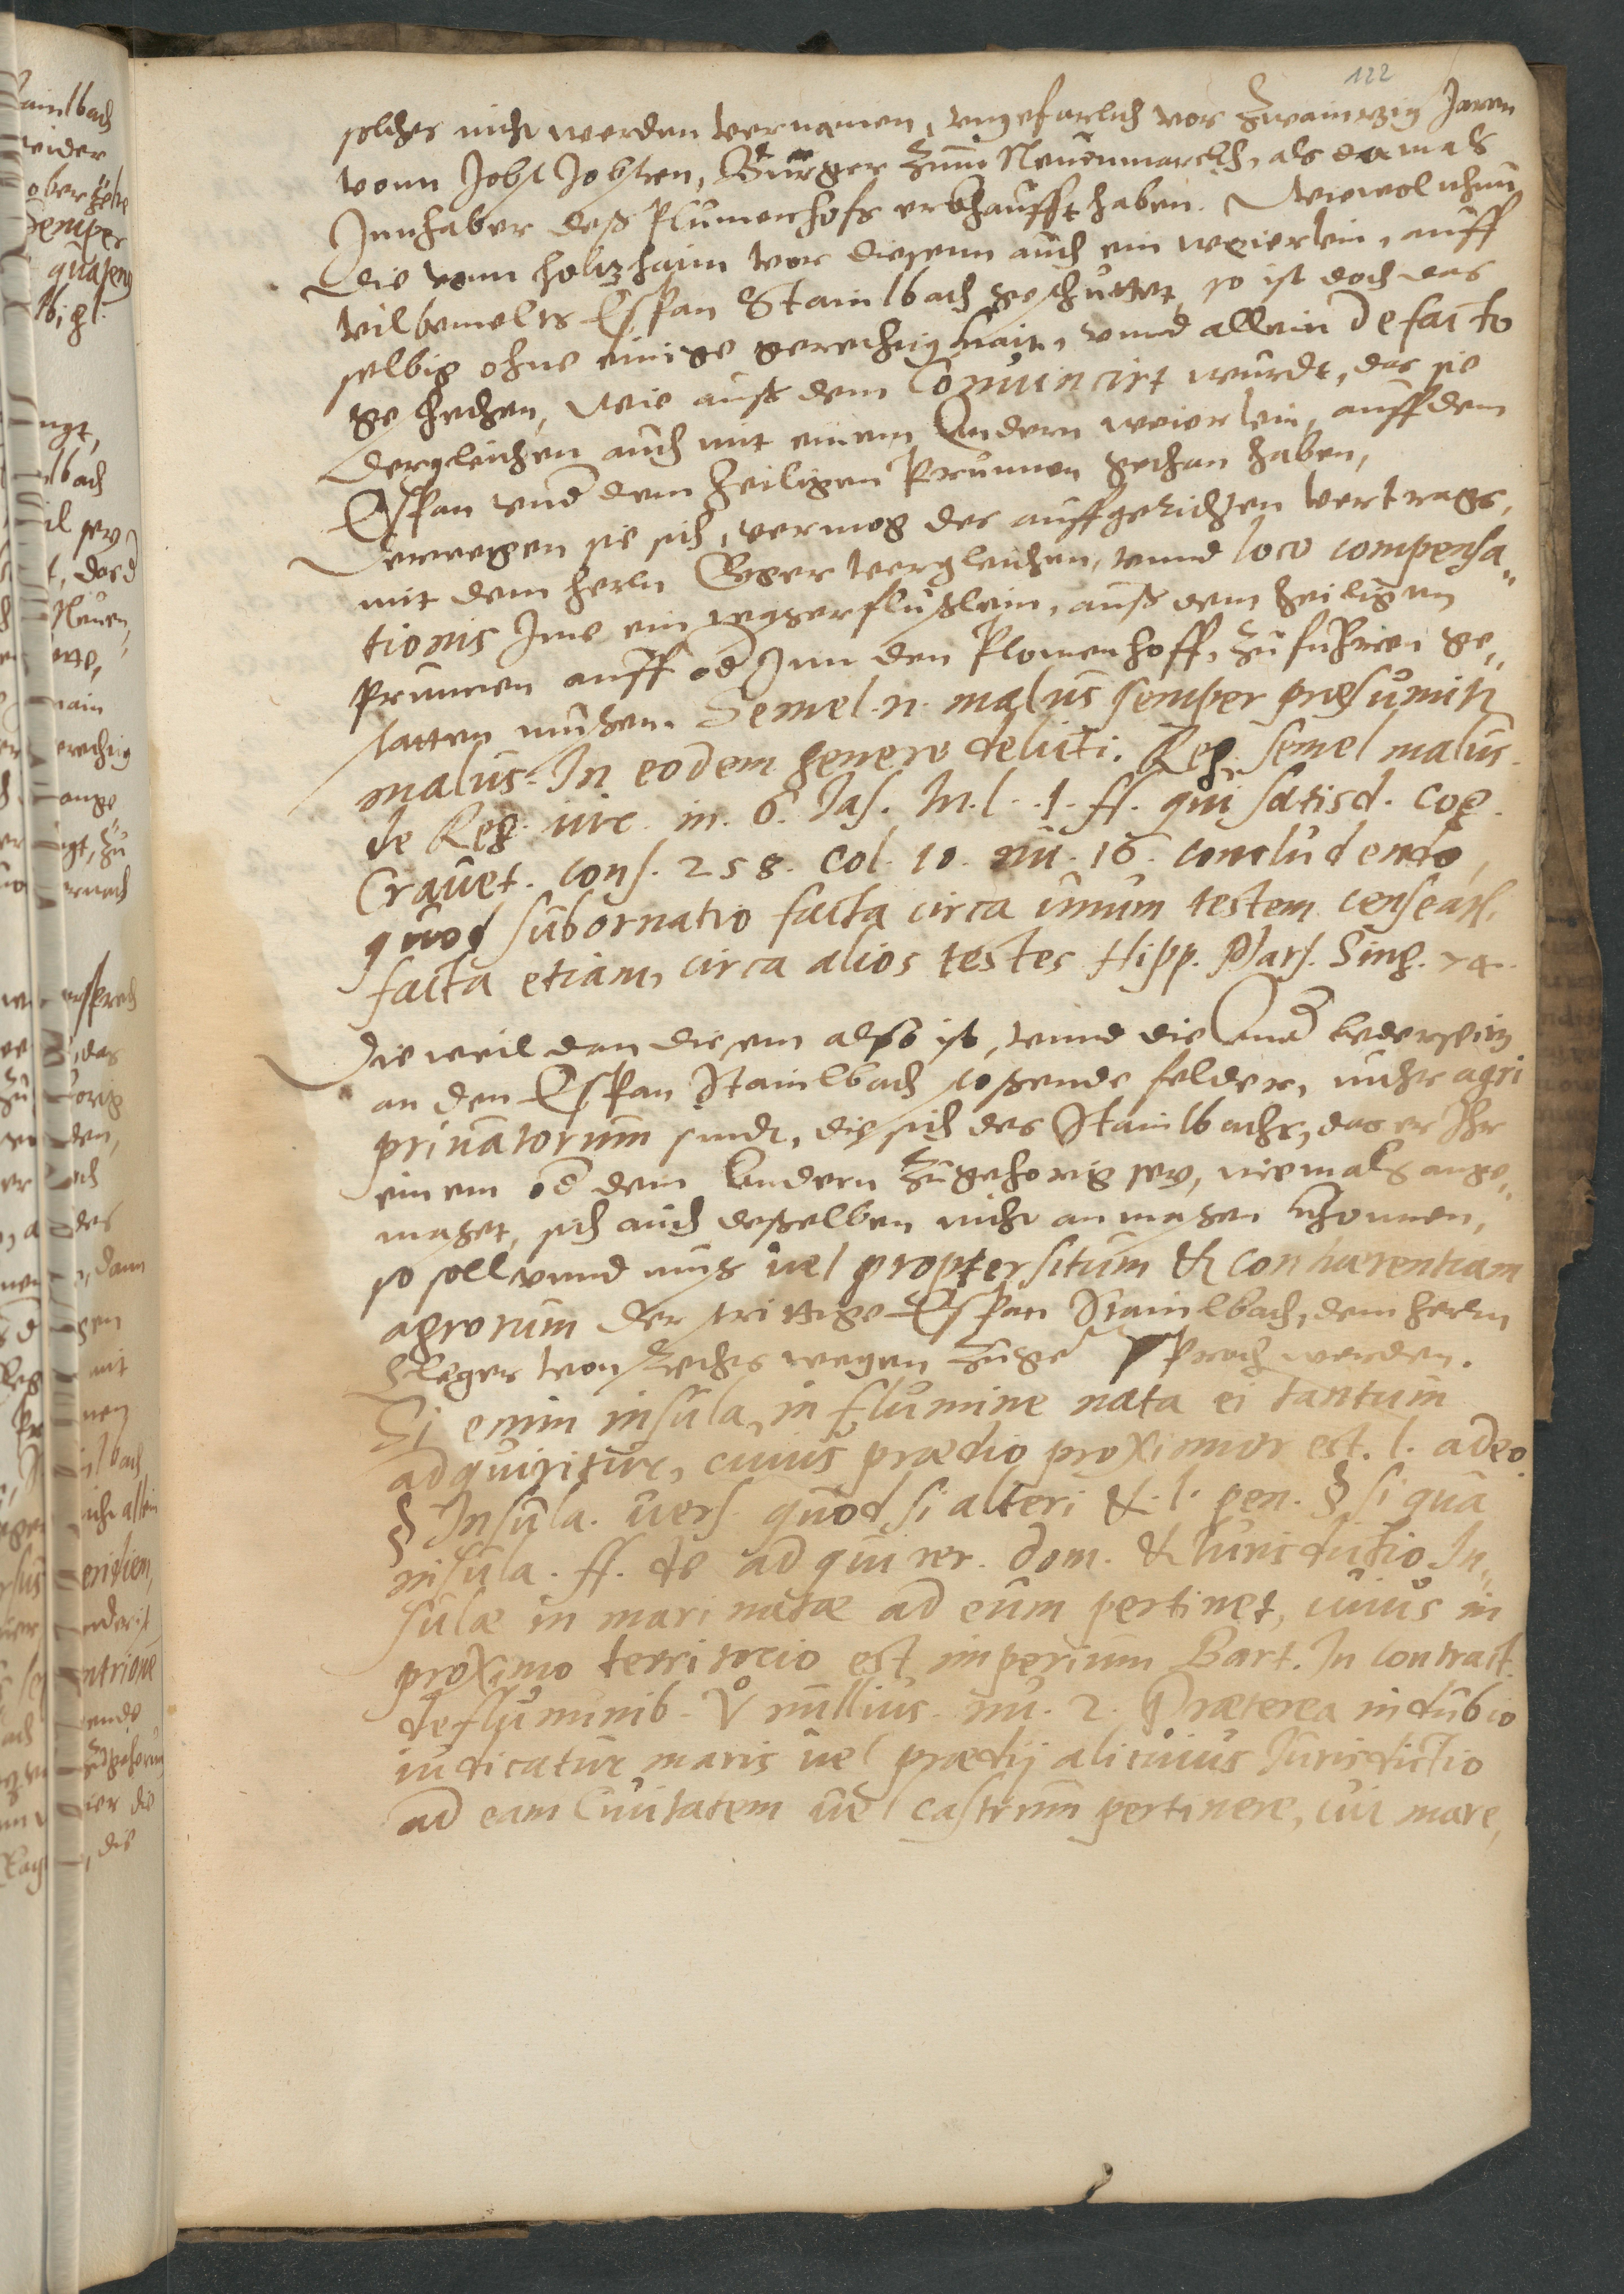 122
solches nicht werden vernainen, ungefarlich vor zwaintzig Jaren
vonn Jobst Jobsten, Burger zum Neuenmarckh, als damals
Innhaber deß Plumenhofs erkhaufft haben. Wiewol nhun
die vonn holtzhaim vor diesem auch ein weierlein, auff
vilbemelts Espan Stainlbach geschuttet, so ist doch das
selbig ohne einige gerechtigkait, unnd allein de facto
geschechen, Wie auß dem Conuincirt wurdt, das sie
dergleichen auch mit einem Andern weierlein, auff dem
Espan und dem heiligen Prunnen gethan haben,
Derwegen sie sich, vermog des auffgerichten vertrags,
mit dem herln Eger vergleichen, unnd loco compensa„
tionis Ime ein wasserflußlein, auß dem heiligen
Prunnen auff od Inn den Plomenhoff, zu fuhren ge„
statten mußen. Semel .n. malus semper præsumitr
malus. In eodem genere delicti. Reg. semel malus.
de Reg. iur. in. 6. Jas. In.l. .1. ff. qui satisd. cog.
Crauet. cons. 258. col. 10. nu. 16. concludendo,
quod subornatio facta circa unum testem censeatr.
facta etiam, circa alios testes Hipp. Mars. Sing. 74.
Die weil dan diesem also ist, unnd die Andr bederseitz
an den Espan Stainlbach stoßende felder, nicht agri
priuatorum sindt, die sich des Stainlbachs, das er Ihr
einem od dem Andern zugehorig sey, niemals ange„
maßet, sich auch deßelben nicht anmaßen khonnen,
so soll unnd muß uel propter situm & conhærentiam
agrorum der strittige Espan Stainlbach, dem herln
Cleger von Rechts wegen zuge sproch werden.
Si enim insula, in flumine nata ei tantum
adquiritur, cuius prædio proximior est. l. adeo.
§ Insula. uers. quod si alteri &. l. pen. § si qua
insula. ff. de adquirer. dom. & Iurisdictio In„
sulæ in mari natæ ad eum pertinet, cuius in
proximo territorio est imperium Bart. In contract.
de fluminib. V nullius. nu. 2. Præterea in dubio
iudicatur maris uel prædij alicuius Iurisdictio
ad eam Ciuitatem uel castrum pertinere, cui mare,